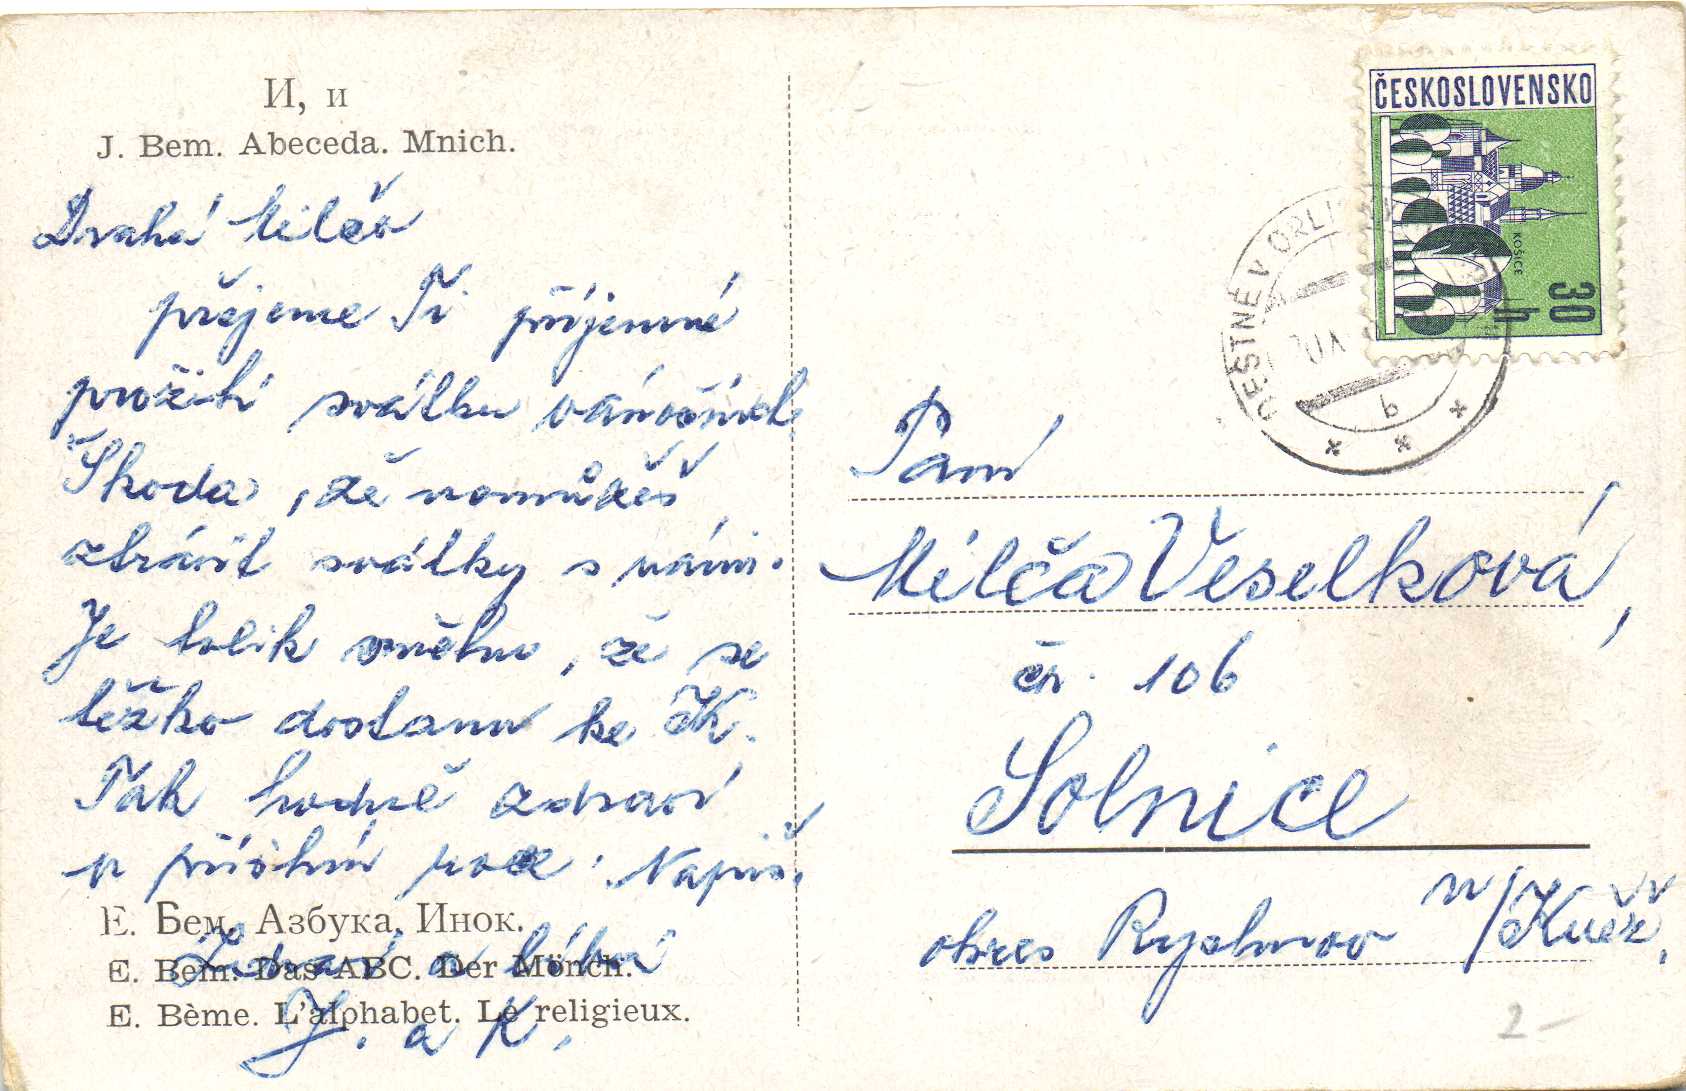 И, и
J. Bem. Abeceda. Mnich.
Drahá Milčo
přejeme Ti příjemné
prožití svátků vánočních
Škoda, že nemůžeš
ztrávit svátky s námi.
Je tolik sněhu, že se
těžko dostanu ke K.
Tak hodně zdraví
v příštím roce. Napiš.
E. Бем. Азбука. Инок.
Zdraví a líbá
E. Bem. Das ABC. Der Mönch.
J. a K.
E. Bème. L'alphabet. Le religieux.
ČESKOSLOVENSKO
KOŠICE
30 h
DEŠTNÉ V ORLI
b
Paní
Milča Veselková,
čp. 106
Solnice
okres Rychnov n/Kněž.
2-